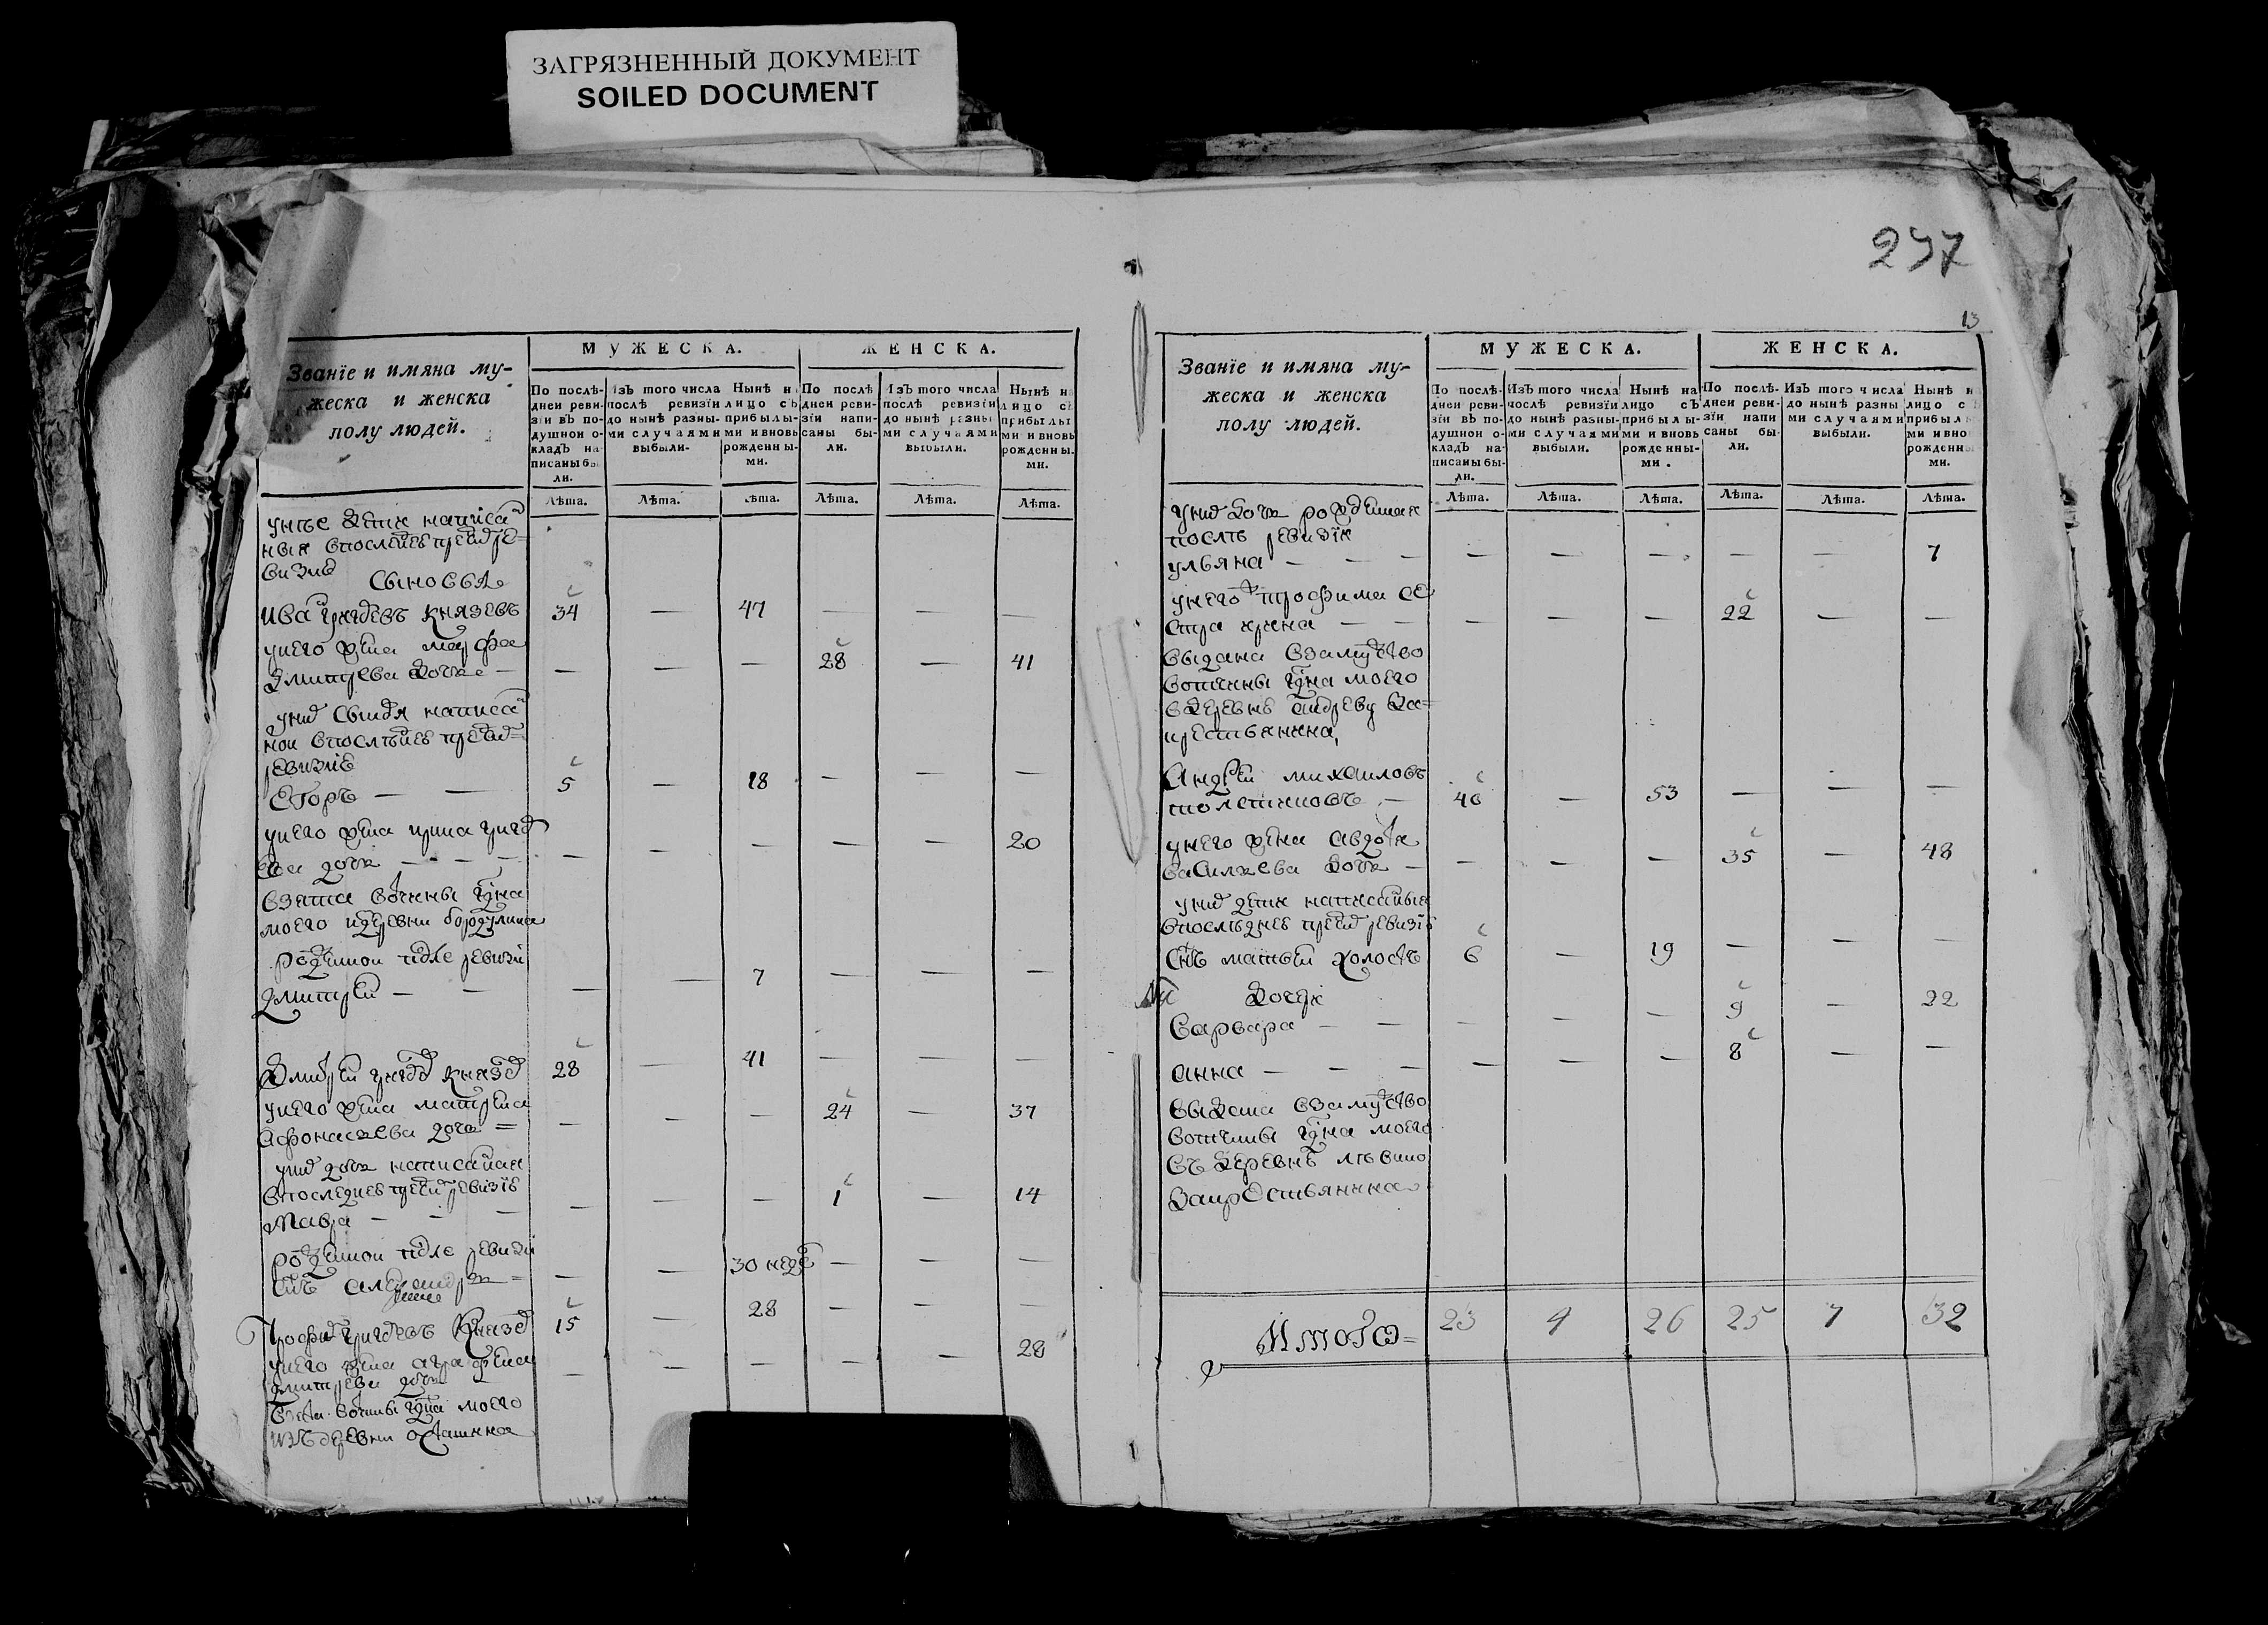 ЗАГРЯЗНЕННЫЙ ДОКУМЕНТ
SOILED DOCUMENT
237
13
Званїе и имяна му-
жеска и женска
полу людей.
МУЖЕСКА.
ЖЕНСКА.
По послѣ-
дней реви-
зїи въ по-
душной о-
кладъ на-
писаны бы
ли.
Изъ того числа
послѣ ревизїи
до нынѣ разны-
ми случаями
выбыли.
Нынѣ н
лицо съ
прибылы-
ми и вновь
рожденны-
ми.
По послѣ
дней реви-
зїи напи-
саны бы-
ли.
Изъ того числа
послѣ ревизїи
до нынѣ разны
ми случаями
выбыли.
Нынѣ н
лицо съ
прибылы
ми и вновь
рожденны-
ми.
Лѣта. Лѣта. Лѣта. Лѣта. Лѣта. Лѣта.
унее дети написа
ныя впоследнеѣ пред ре=
визиѣ
сыновья
Ива григоревъ князевъ 34 — 47 — — —
унего жена марфа
дмитрева дочь — — — — 28 — 41
них сын написа
ной впоследнеѣ пред
ревизиѣ
Егоръ — — 5 — 18 — — —
унего жена ирина григо
ва дочь — — — — — — — — 20
взята вотчины
моего из деревни бородулина
рожденной после ревизи
дмитрей — — — — 7 — — —
Дмитрей григо князе 28 — 41 — — —
унего жена матрена
афонасьева дочь = — — — 24 — 37
них дочь написаная
впоследнеѣ пред ревизїѣ
мавра — — — — — — 1 — 14
рожденной после ревизи
сынъ = — — 30 неде — — —
Трофи григоревъ князе 15 — 28 — — —
унего жена аграфена
дмитрева дочь — — — — — — 28
взята вотчины моего
изъ деревни осташкина
Званїе и имяна му-
жеска и женска
полу людей.
МУЖЕСКА.
ЖЕНСКА.
По послѣ-
дней реви-
зїи въ по-
душной о-
кладъ на-
писаны бы-
ли.
Изъ того числа
послѣ ревизїи
до нынѣ разны-
ми случаями
выбыли.
Нынѣ на
лицо съ
прибылы-
ми и вновь
рожденны-
ми.
По послѣ-
дней реви-
зїи напи
саны бы
ли.
Изъ того числа
до нынѣ разны
ми случаями
выбыли.
Нынѣ н
лицо с
прибыл
ми и вно
рожденны
ми.
Лѣта. Лѣта. Лѣта. Лѣта. Лѣта. Лѣта.
них дочь рожденая
послѣ ревизїи
ульяна — — — — — — — — 7
унего трофима се
стра ирина — — — — — 22 — —
выдана взамужство
вотчины моего
вдеревнѣ андреву за=
крестьянина,
Андрей михаиловъ
40 — 53 — — —
унего жена авдотя
васильева дочь — — — — 35 — 48
них дети написаныя
впослѣднеѣ пред ревизїѣ
сынъ матвей холостъ 6 — 19 — — —
дочери
варвара — — — — — 9 — 22
анна — — — — — — 8 — —
выдана взамужство
вотчины моего
въ деревнѣ
закрестьянина
Итого= 23 4 26 25 7 32